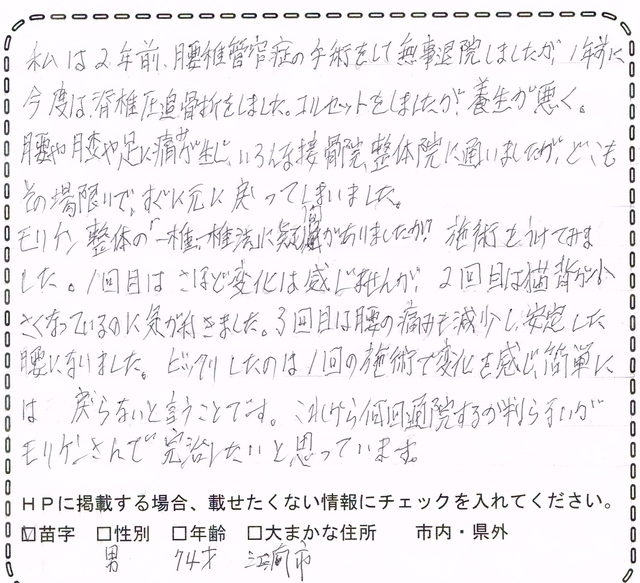 私は2年前、腰椎管窄症の手術をして無事退院しましたが、1年前に
今度は、脊椎圧迫骨折をしました。コルセットをしましたが、養生が悪く、
腰や膝や足に痛みが生じ、いろんな接骨院、整体院に通いましたが、どこも
その場限りで、すぐに元に戻ってしまいました。
モリケン整体の「一椎一椎法」に疑問がありましたが!! 施術をうけてみま
した。1回目はさほど変化は感じませんが、2回目は猫背が小
さくなっているのに気が付きました。3回目は腰の痛みも減少し、安定した
腰になりました。ビックリしたのは1回の施術で変化を感じ、簡単に
は 戻らないと言うことです。これから何回通院するか判らないが
モリケンさんで完治したいと思っています。
HPに掲載する場合、載せたくない情報にチェックを入れてください。
☑苗字 □性別 □年齢 □大まかな住所 市内・県外
男 74才 江南市